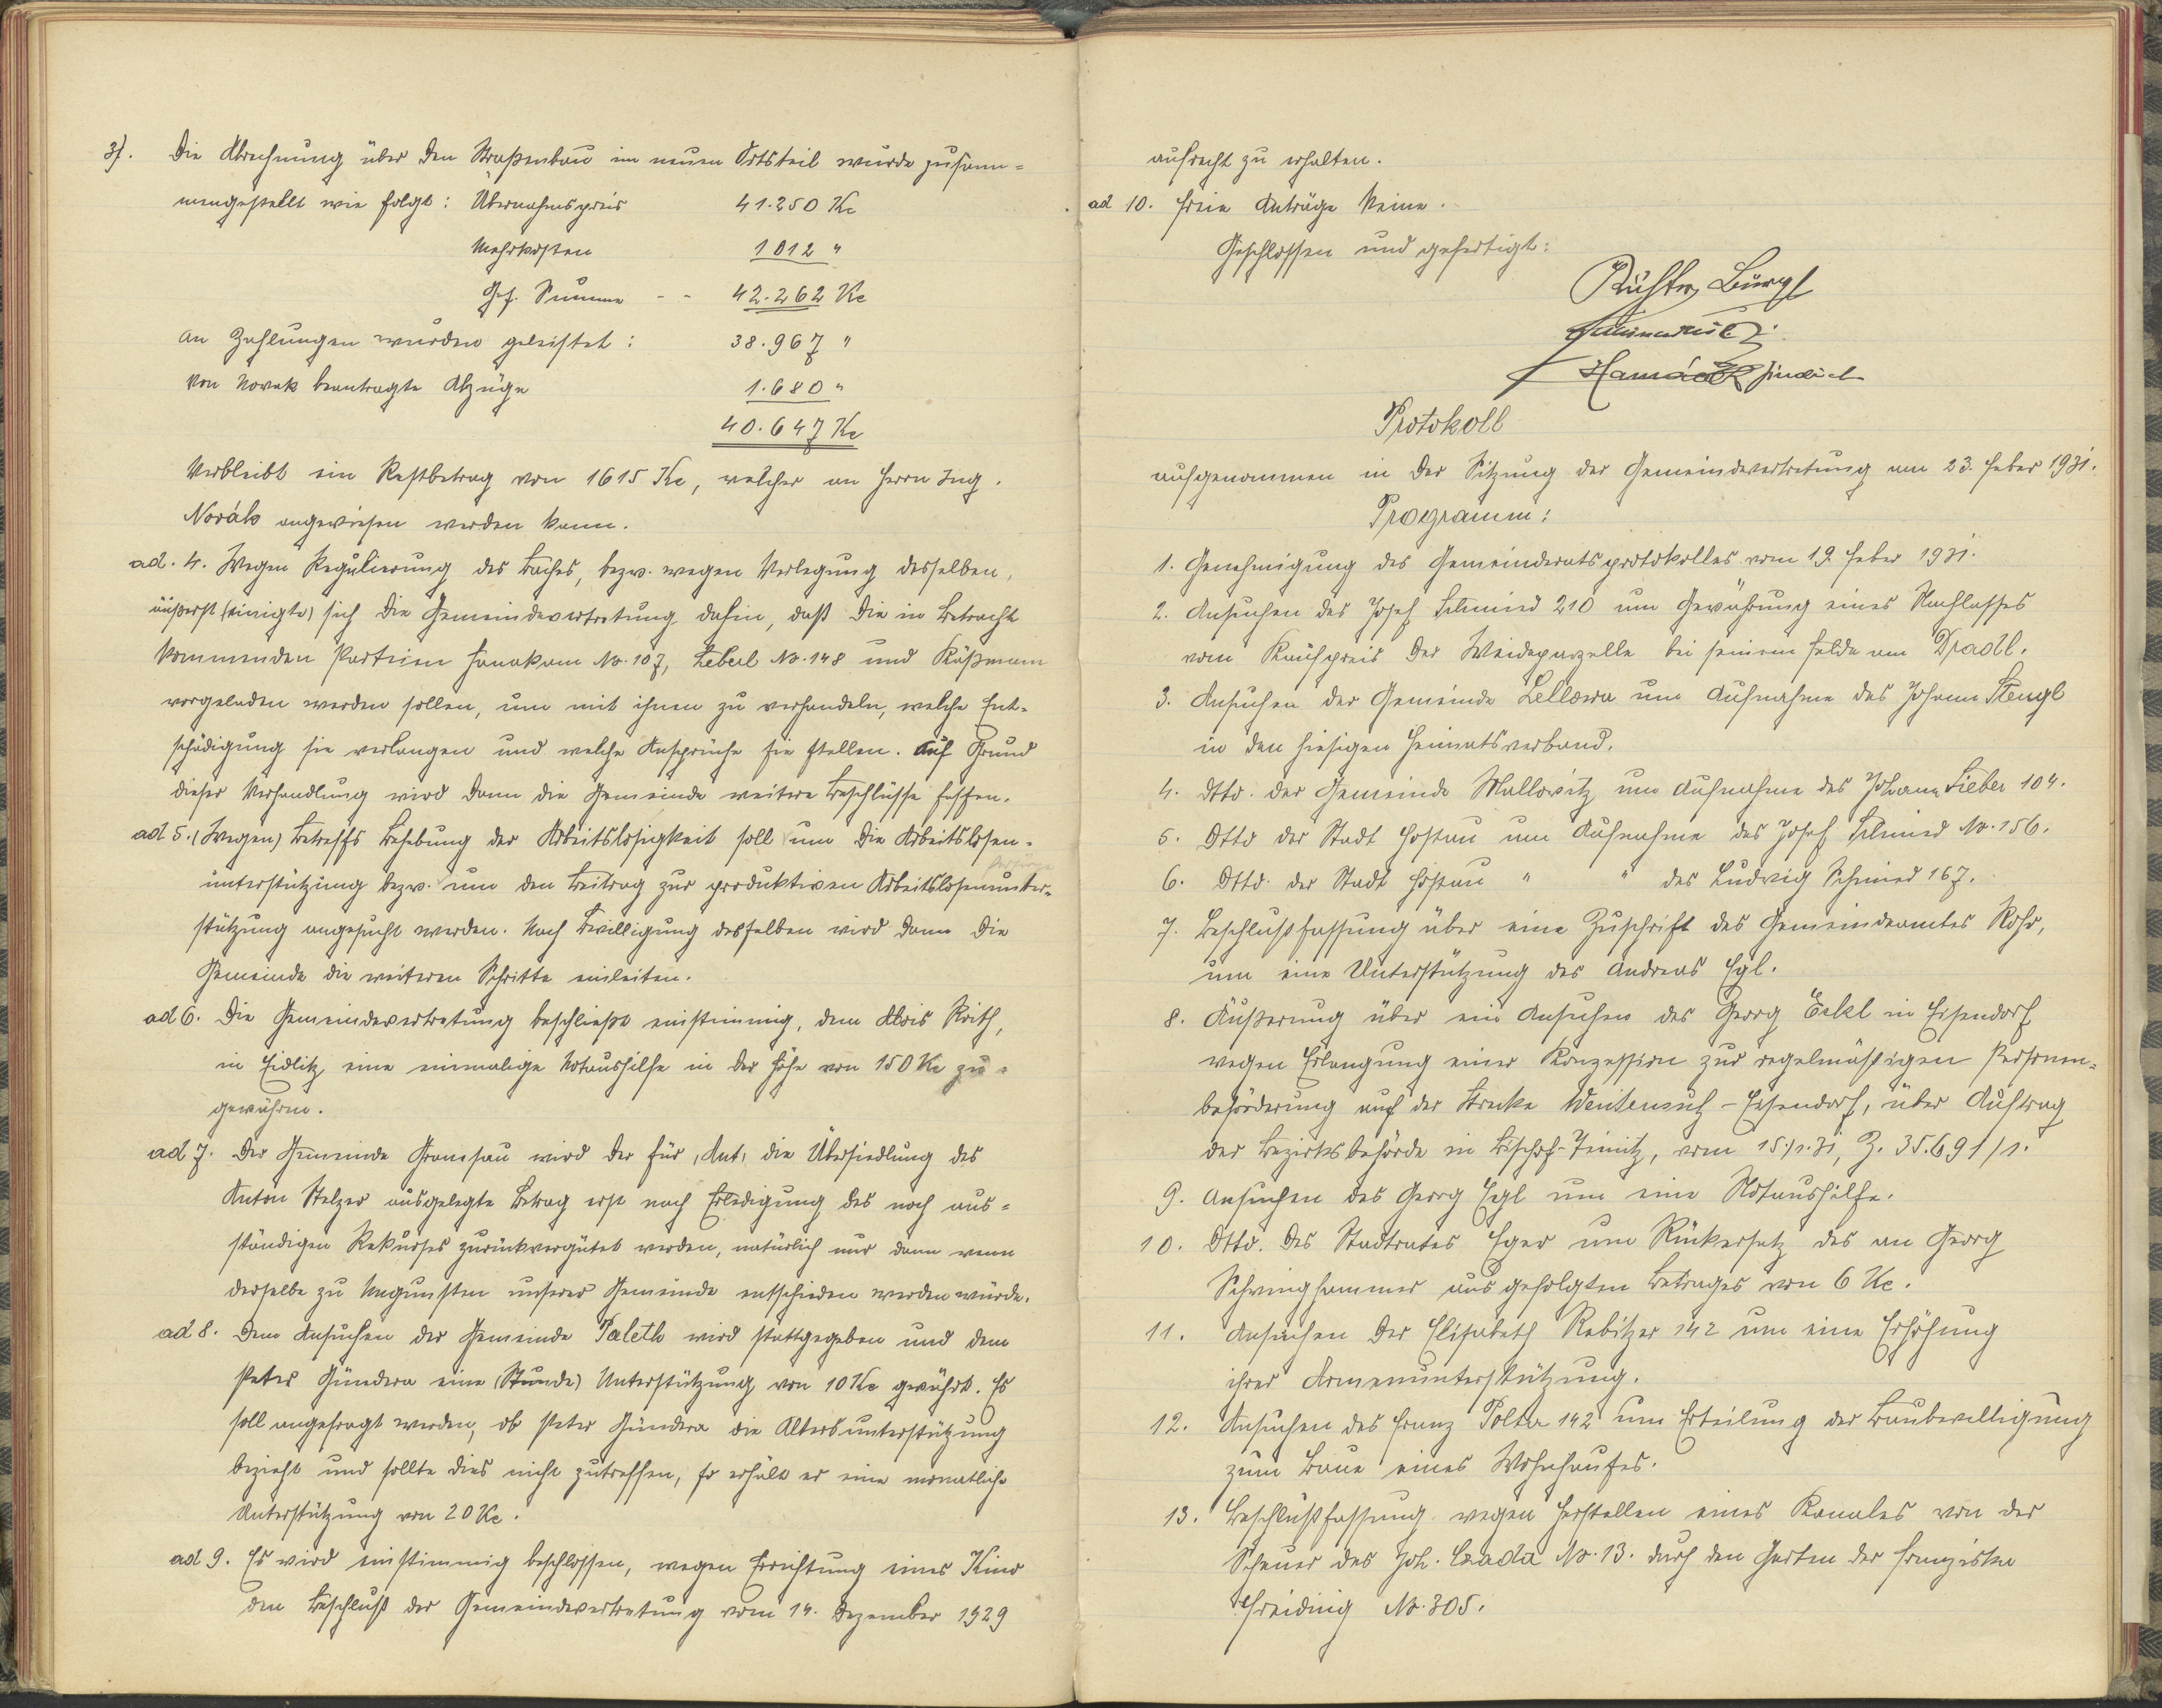 3). Die Abrechnung über den Straßenbau im neuen Ortsteil wurde zusam-
mengestellt wie folgt: Übernahmspreis 41.250 Kc
Mehrkosten 1012 "
Ges. Summe - - 42.262 Kc
an Zahlungen wurden geleistet: 38.967 "
Von Novak beantragte Abzüge 1.680 "
40.647 Kc
Verbleibt ein Restbetrag von 1615 Kc, welcher an Herrn Ing.
Novák angewiesen werden kann.
ad. 4. Wegen Regulierung des Baches, bezw. wegen Verlegung desselben,
äußerst (einigte) sich die Gemeindevertretung dahin, daß die in Betracht
kommenden Parteien Hanakam No. 107, Zeberl No. 148 und Roßmann
vorgeladen werden sollen, um mit ihnen zu verhandeln, welche Ent-
schädigung sie verlangen und welche Ansprüche sie stellen. Auf Grund
dieser Verhandlung wird dann die Gemeinde weitere Beschlüsse fassen.
ad 5. (Wegen) Betreffs Behebung der Arbeitslosigkeit soll um die Arbeitslosen-
unterstützung bezw. um den Beitrag zur produktiven Arbeitslosenunter-
stützung angesucht werden. Nach Bewilligung desselben wird dann die
Gemeinde die weiteren Schritte einleiten.
ad 6. Die Gemeindevertretung beschließt einstimmig, dem Alois Reith,
in Eidlitz eine einmalige Notaushilfe in der Höhe von 150 Kc zu-
gewähren.
ad 7. Der Gemeinde Gramsau wird der für, Ant, die Übersiedlung des
Anton Stelzer ausgelegte Betrag erst nach Erledigung des noch aus-
ständigen Rekurses zurückvergütet werden, natürlich nur dann wenn
derselbe zu Ungunsten unserer Gemeinde entschieden werden würde.
ad 8. Dem Ansuchen der Gemeinde Paleth wird stattgegeben und dem
Peter Gündera eine (Stunde) Unterstützung von 10 Kc gewährt. Es
soll angefragt werden, ob Peter Gündera die Altersunterstützung
bezieht und sollte dies nicht zutreffen, so erhält er eine monatliche
Unterstützung von 20 Kc.
ad 9. Es wird einstimmig beschlossen, wegen Errichtung eines Kino
den Beschluß der Gemeindevertretung vom 14. Dezember 1929
aufrecht zu erhalten.
ad 10. Freie Anträge keine.
Geschlossen und gefertigt:
Richter, Bürgl
Jindrich
Protokoll
aufgenommen in der Sitzung der Gemeindevertretung am 23. Feber 1931.
Programm:
1. Genehmigung des Gemeinderatsprotokolles vom 19. Feber 1931.
2. Ansuchen des Josef Schmied 210 um Gewährung eines Nachlasses
vom Kaufpreis der Weideparzelle bei seinem Felde am Dradl.
3. Ansuchen der Gemeinde Lellowa um Aufnahme des Johann Stengl
in den hiesigen Heimatsverband.
4. Dtto. der Gemeinde Mallowitz um Aufnahme des Johann Sieber 104.
5. Dtto der Stadt Hostau um Aufnahme des Josef Schmied No. 156.
6. Dtto. der Stadt Hostau " " des Ludwig Schmied 167.
7. Beschlußfassung über eine Zuschrift des Gemeindeamtes Rohr,
um eine Unterstützung des Andreas Egl.
8. Äußerung über ein Ansuchen des Georg Eckl in Eisendorf
wegen Erlangung einer Konzession zur regelmäßigen Personen-
beförderung auf der Strecke Weißensulz - Eisendorf, über Auftrag
der Bezirksbehörde in Bischof-Teinitz, vom 15./1.31, Z. 35.691/1.
9. Ansuchen des Georg Egl um eine Notaushilfe.
10. Dtto. des Stadtrates Eger um Rückersatz des an Georg
Schwinghammer ausgefolgten Betrages von 6 Kc.
11. Ansuchen der Elisabeth Rebitzer 142 um eine Erhöhung
ihrer Armenunterstützung.
12. Ansuchen des Franz Polka 142 um Erteilung der Baubewilligung
zum Baue eines Wohnhauses.
13. Beschlußfassung wegen Herstellen eines Kanales von der
Scheuer des Joh. Czada No. 13. durch den Garten der Franziska
No. 305.